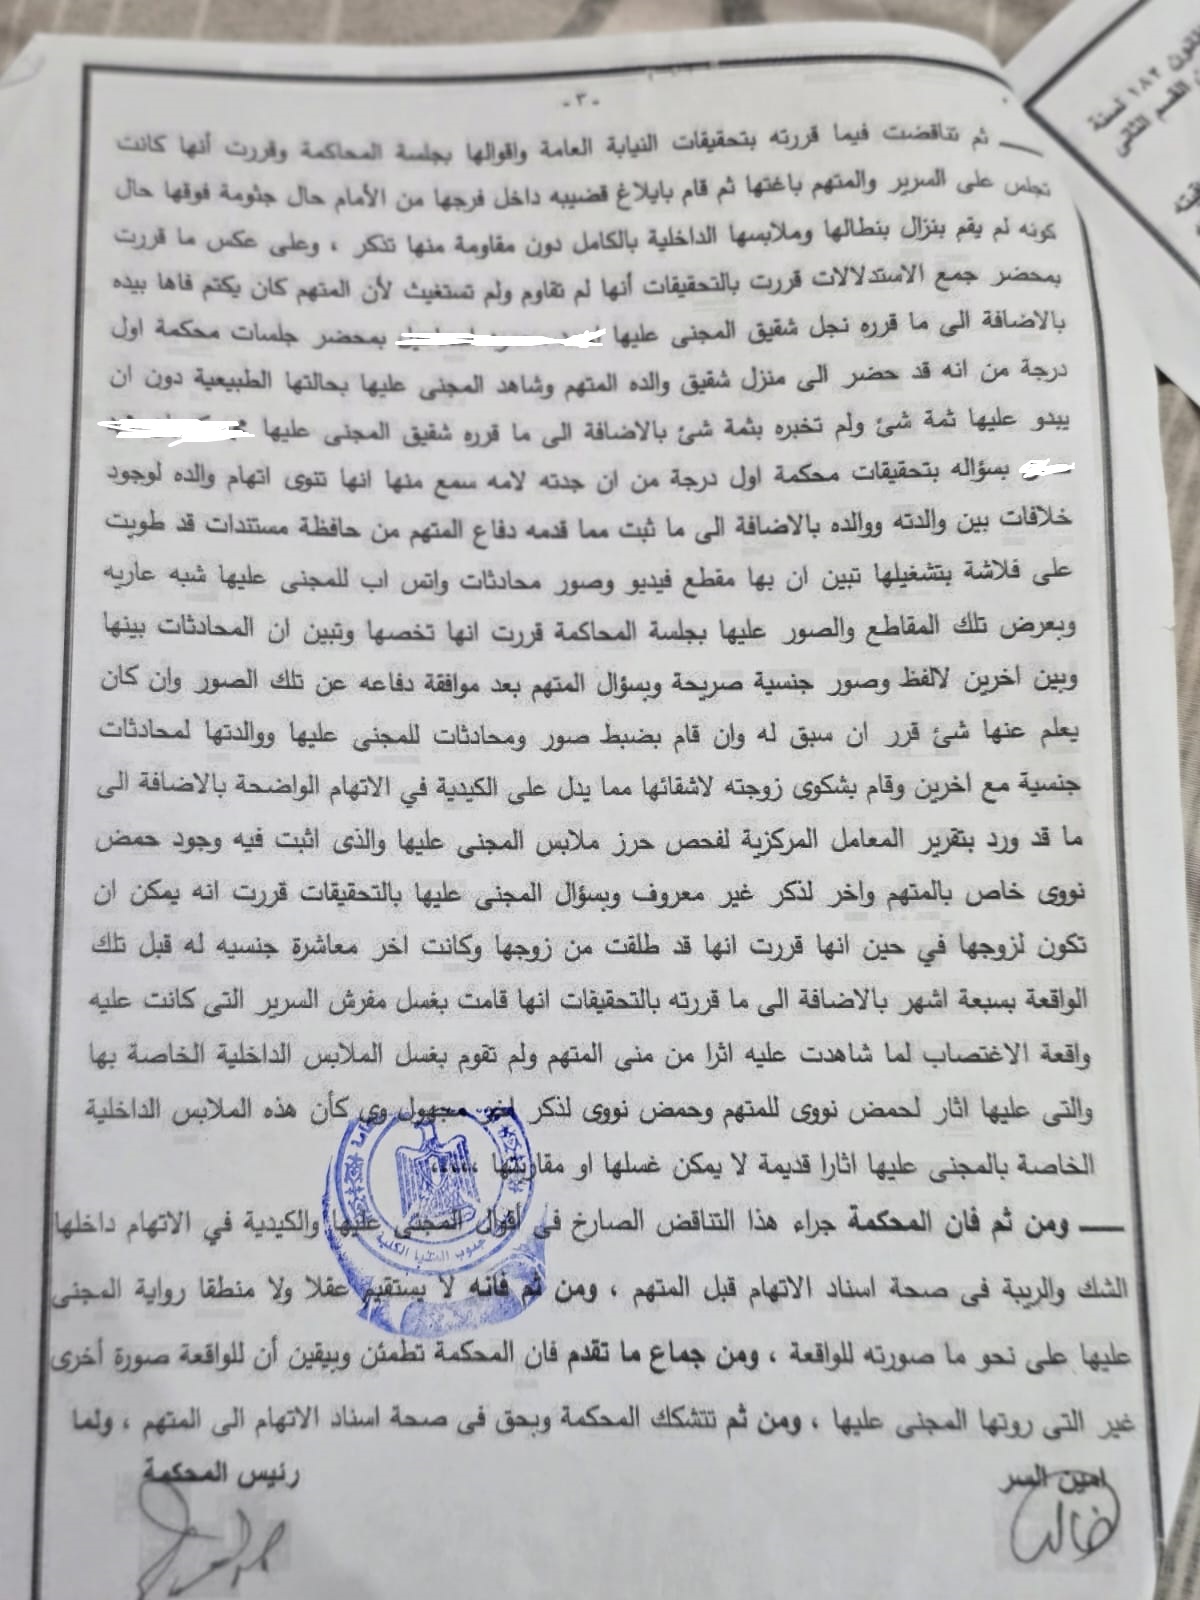 -٣-
ثم تناقضت فيما قررته بتحقيقات النيابة العامة واقوالها بجلسة المحاكمة وقررت أنها كانت
تجلس على السرير والمتهم باغتها ثم قام بايلاغ قضيبه داخل فرجها من الأمام حال جثومة فوقها حال
كونه لم يقم بنزال بنطالها وملابسها الداخلية بالكامل دون مقاومة منها تذكر ، وعلى عكس ما قررت
بمحضر جمع الاستدلالات قررت بالتحقيقات أنها لم تقاوم ولم تستغيث لأن المتهم كان يكتم فاها بيده
بالاضافة الى ما قرره نجل شقيق المجنى عليها بمحضر جلسات محكمة اول
درجة من انه قد حضر الى منزل شقيق والده المتهم وشاهد المجنى عليها بحالتها الطبيعية دون ان
يبدو عليها ثمة شئ ولم تخبره بثمة شئ بالاضافة الى ما قرره شقيق المجنى عليها
بسؤاله بتحقيقات محكمة اول درجة من ان جدته لامه سمع منها انها تنوى اتهام والده لوجود
خلافات بين والدته ووالده بالاضافة الى ما ثبت مما قدمه دفاع المتهم من حافظة مستندات قد طويت
على فلاشة بتشغيلها تبين ان بها مقطع فيديو وصور محادثات واتس اب للمجنى عليها شبه عاريه
وبعرض تلك المقاطع والصور عليها بجلسة المحاكمة قررت انها تخصها وتبين ان المحادثات بينها
وبين اخرين لالفظ وصور جنسية صريحة وبسؤال المتهم بعد موافقة دفاعه عن تلك الصور وان كان
يعلم عنها شئ قرر ان سبق له وان قام بضبط صور ومحادثات للمجنى عليها ووالدتها لمحادثات
جنسية مع اخرين وقام بشكوى زوجته لاشقائها مما يدل على الكيدية في الاتهام الواضحة بالاضافة الى
ما قد ورد بتقرير المعامل المركزية لفحص حرز ملابس المجنى عليها والذى اثبت فيه وجود حمض
نووى خاص بالمتهم واخر لذكر غير معروف وبسؤال المجنى عليها بالتحقيقات قررت انه يمكن ان
تكون لزوجها في حين انها قررت انها قد طلقت من زوجها وكانت اخر معاشرة جنسيه له قبل تلك
الواقعة بسبعة اشهر بالاضافة الى ما قررته بالتحقيقات انها قامت بغسل مفرش السرير التى كانت عليه
واقعة الاغتصاب لما شاهدت عليه اثرا من منى المتهم ولم تقوم بغسل الملابس الداخلية الخاصة بها
والتى عليها اثار لحمض نووى للمتهم وحمض نووى لذكر اخر مجهول وى كأن هذه الملابس الداخلية
الخاصة بالمجنى عليها اثارا قديمة لا يمكن غسلها او مقاربتها ،،،،،
ومن ثم فان المحكمة جراء هذا التناقض الصارخ فى أقوال المجنى عليها والكيدية في الاتهام داخلها
الشك والريبة فى صحة اسناد الاتهام قبل المتهم ، ومن ثم فانه لا يستقيم عقلا ولا منطقا رواية المجنى
عليها على نحو ما صورته للواقعة ، ومن جماع ما تقدم فان المحكمة تطمئن وبيقين أن للواقعة صورة أخرى
غير التى روتها المجنى عليها ، ومن ثم تتشكك المحكمة وبحق فى صحة اسناد الاتهام الى المتهم ، ولما
امين السر رئيس المحكمة
خالد